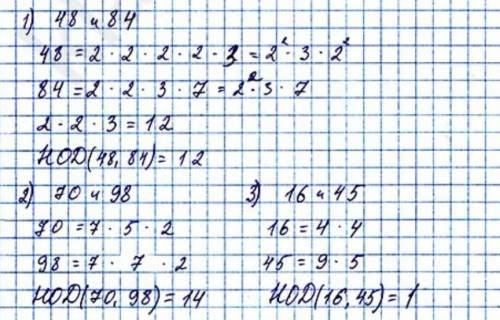 1) 48 и 84
48 = 2 · 2 · 2 · 2 · 3 = 2² · 3 · 2²
84 = 2 · 2 · 3 · 7 = 2² · 3 · 7
2 · 2 · 3 = 12
НОД(48, 84) = 12
2) 70 и 98
70 = 7 · 5 · 2
98 = 7 · 7 · 2
НОД(70, 98) = 14
3) 16 и 45
16 = 4 · 4
45 = 9 · 5
НОД(16, 45) = 1